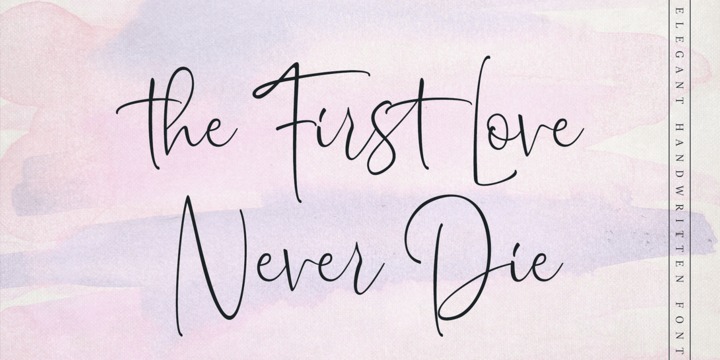 the First Love
Never Die
ELEGANT HANDWRITTEN FONT